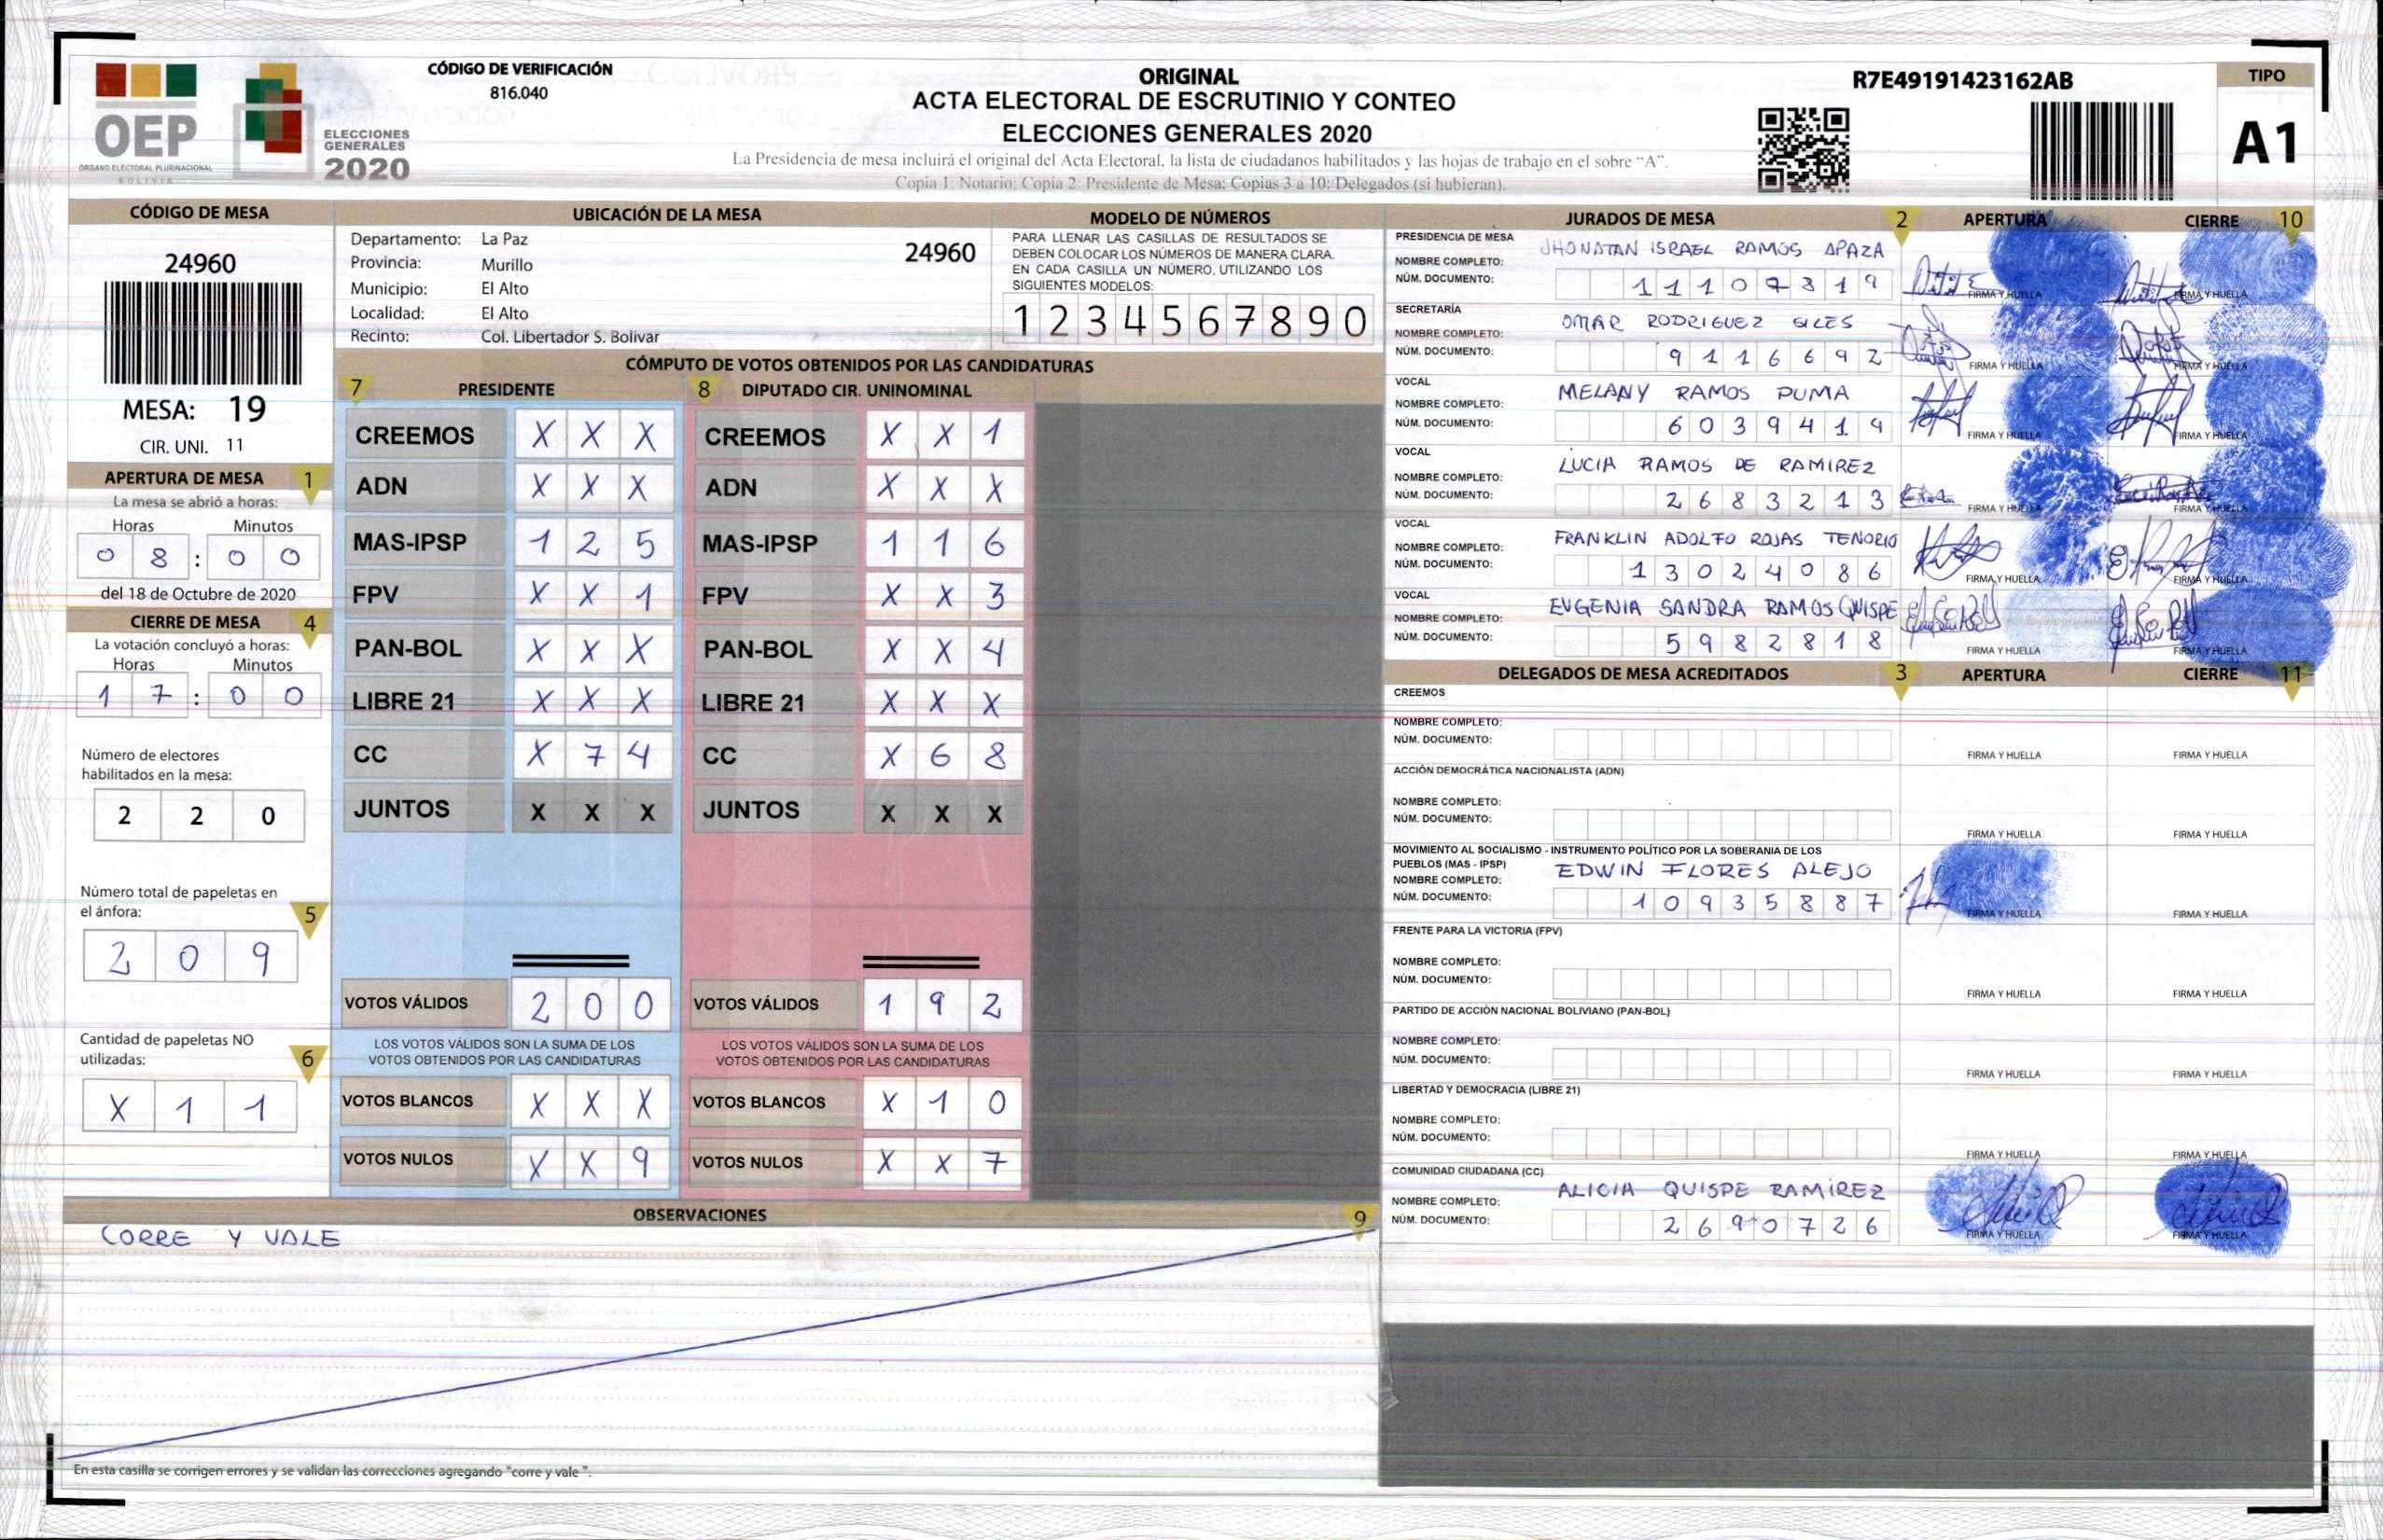 OEP
ÓRGANO ELECTORAL PLURINACIONAL
BOLIVIA
ELECCIONES
GENERALES
2020
CÓDIGO DE VERIFICACIÓN
816.040
ORIGINAL
ACTA ELECTORAL DE ESCRUTINIO Y CONTEO
ELECCIONES GENERALES 2020
La Presidencia de mesa incluirá el original del Acta Electoral, la lista de ciudadanos habilitados y las hojas de trabajo en el sobre "A".
Copia 1: Notario; Copia 2: Presidente de Mesa; Copias 3 a 10: Delegados (si hubieran).
R7E49191423162AB
TIPO
A1
CÓDIGO DE MESA
24960
MESA: 19
CIR. UNI. 11
APERTURA DE MESA 1
La mesa se abrió a horas:
Horas Minutos
0 8 : 0 0
del 18 de Octubre de 2020
CIERRE DE MESA 4
La votación concluyó a horas:
Horas Minutos
1 7 : 0 0
Número de electores
habilitados en la mesa:
2 2 0
Número total de papeletas en
el ánfora: 5
2 0 9
Cantidad de papeletas NO
utilizadas: 6
X 1 1
UBICACIÓN DE LA MESA
Departamento: La Paz 24960
Provincia: Murillo
Municipio: El Alto
Localidad: El Alto
Recinto: Col. Libertador S. Bolivar
MODELO DE NÚMEROS
PARA LLENAR LAS CASILLAS DE RESULTADOS SE
DEBEN COLOCAR LOS NÚMEROS DE MANERA CLARA.
EN CADA CASILLA UN NÚMERO, UTILIZANDO LOS
SIGUIENTES MODELOS:
1 2 3 4 5 6 7 8 9 0
CÓMPUTO DE VOTOS OBTENIDOS POR LAS CANDIDATURAS
7 PRESIDENTE 8 DIPUTADO CIR. UNINOMINAL
CREEMOS X X X CREEMOS X X 1
ADN X X X ADN X X X
MAS-IPSP 1 2 5 MAS-IPSP 1 1 6
FPV X X 1 FPV X X 3
PAN-BOL X X X PAN-BOL X X 4
LIBRE 21 X X X LIBRE 21 X X X
CC X 7 4 CC X 6 8
JUNTOS X X X JUNTOS X X X
VOTOS VÁLIDOS 2 0 0 VOTOS VÁLIDOS 1 9 2
LOS VOTOS VÁLIDOS SON LA SUMA DE LOS LOS VOTOS VÁLIDOS SON LA SUMA DE LOS
VOTOS OBTENIDOS POR LAS CANDIDATURAS VOTOS OBTENIDOS POR LAS CANDIDATURAS
VOTOS BLANCOS X X X VOTOS BLANCOS X 1 0
VOTOS NULOS X X 9 VOTOS NULOS X X 7
OBSERVACIONES 9
CORRE Y VALE
En esta casilla se corrigen errores y se validan las correcciones agregando "corre y vale ".
JURADOS DE MESA 2 APERTURA CIERRE 10
PRESIDENCIA DE MESA
NOMBRE COMPLETO: JHONATAN ISRAEL RAMOS APAZA
NÚM. DOCUMENTO: 1 1 1 0 7 3 1 9 FIRMA Y HUELLA FIRMA Y HUELLA
SECRETARÍA
NOMBRE COMPLETO: OMAR RODRIGUEZ GILES
NÚM. DOCUMENTO: 9 1 1 6 6 9 2 FIRMA Y HUELLA FIRMA Y HUELLA
VOCAL
NOMBRE COMPLETO: MELANY RAMOS PUMA
NÚM. DOCUMENTO: 6 0 3 9 4 1 9 FIRMA Y HUELLA FIRMA Y HUELLA
VOCAL
NOMBRE COMPLETO: LUCIA RAMOS DE RAMIREZ
NÚM. DOCUMENTO: 2 6 8 3 2 1 3 FIRMA Y HUELLA FIRMA Y HUELLA
VOCAL
NOMBRE COMPLETO: FRANKLIN ADOLFO ROJAS TENORIO
NÚM. DOCUMENTO: 1 3 0 2 4 0 8 6 FIRMA Y HUELLA FIRMA Y HUELLA
VOCAL
NOMBRE COMPLETO: EUGENIA SANDRA RAMOS QUISPE
NÚM. DOCUMENTO: 5 9 8 2 8 1 8 FIRMA Y HUELLA FIRMA Y HUELLA
DELEGADOS DE MESA ACREDITADOS 3 APERTURA CIERRE 11
CREEMOS
NOMBRE COMPLETO:
NÚM. DOCUMENTO: FIRMA Y HUELLA FIRMA Y HUELLA
ACCIÓN DEMOCRÁTICA NACIONALISTA (ADN)
NOMBRE COMPLETO:
NÚM. DOCUMENTO: FIRMA Y HUELLA FIRMA Y HUELLA
MOVIMIENTO AL SOCIALISMO - INSTRUMENTO POLÍTICO POR LA SOBERANIA DE LOS
PUEBLOS (MAS - IPSP)
NOMBRE COMPLETO: EDWIN FLORES ALEJO
NÚM. DOCUMENTO: 1 0 9 3 5 8 8 7 FIRMA Y HUELLA FIRMA Y HUELLA
FRENTE PARA LA VICTORIA (FPV)
NOMBRE COMPLETO:
NÚM. DOCUMENTO: FIRMA Y HUELLA FIRMA Y HUELLA
PARTIDO DE ACCIÓN NACIONAL BOLIVIANO (PAN-BOL)
NOMBRE COMPLETO:
NÚM. DOCUMENTO: FIRMA Y HUELLA FIRMA Y HUELLA
LIBERTAD Y DEMOCRACIA (LIBRE 21)
NOMBRE COMPLETO:
NÚM. DOCUMENTO: FIRMA Y HUELLA FIRMA Y HUELLA
COMUNIDAD CIUDADANA (CC)
NOMBRE COMPLETO: ALICIA QUISPE RAMIREZ
NÚM. DOCUMENTO: 2 6 9 0 7 2 6 FIRMA Y HUELLA FIRMA Y HUELLA